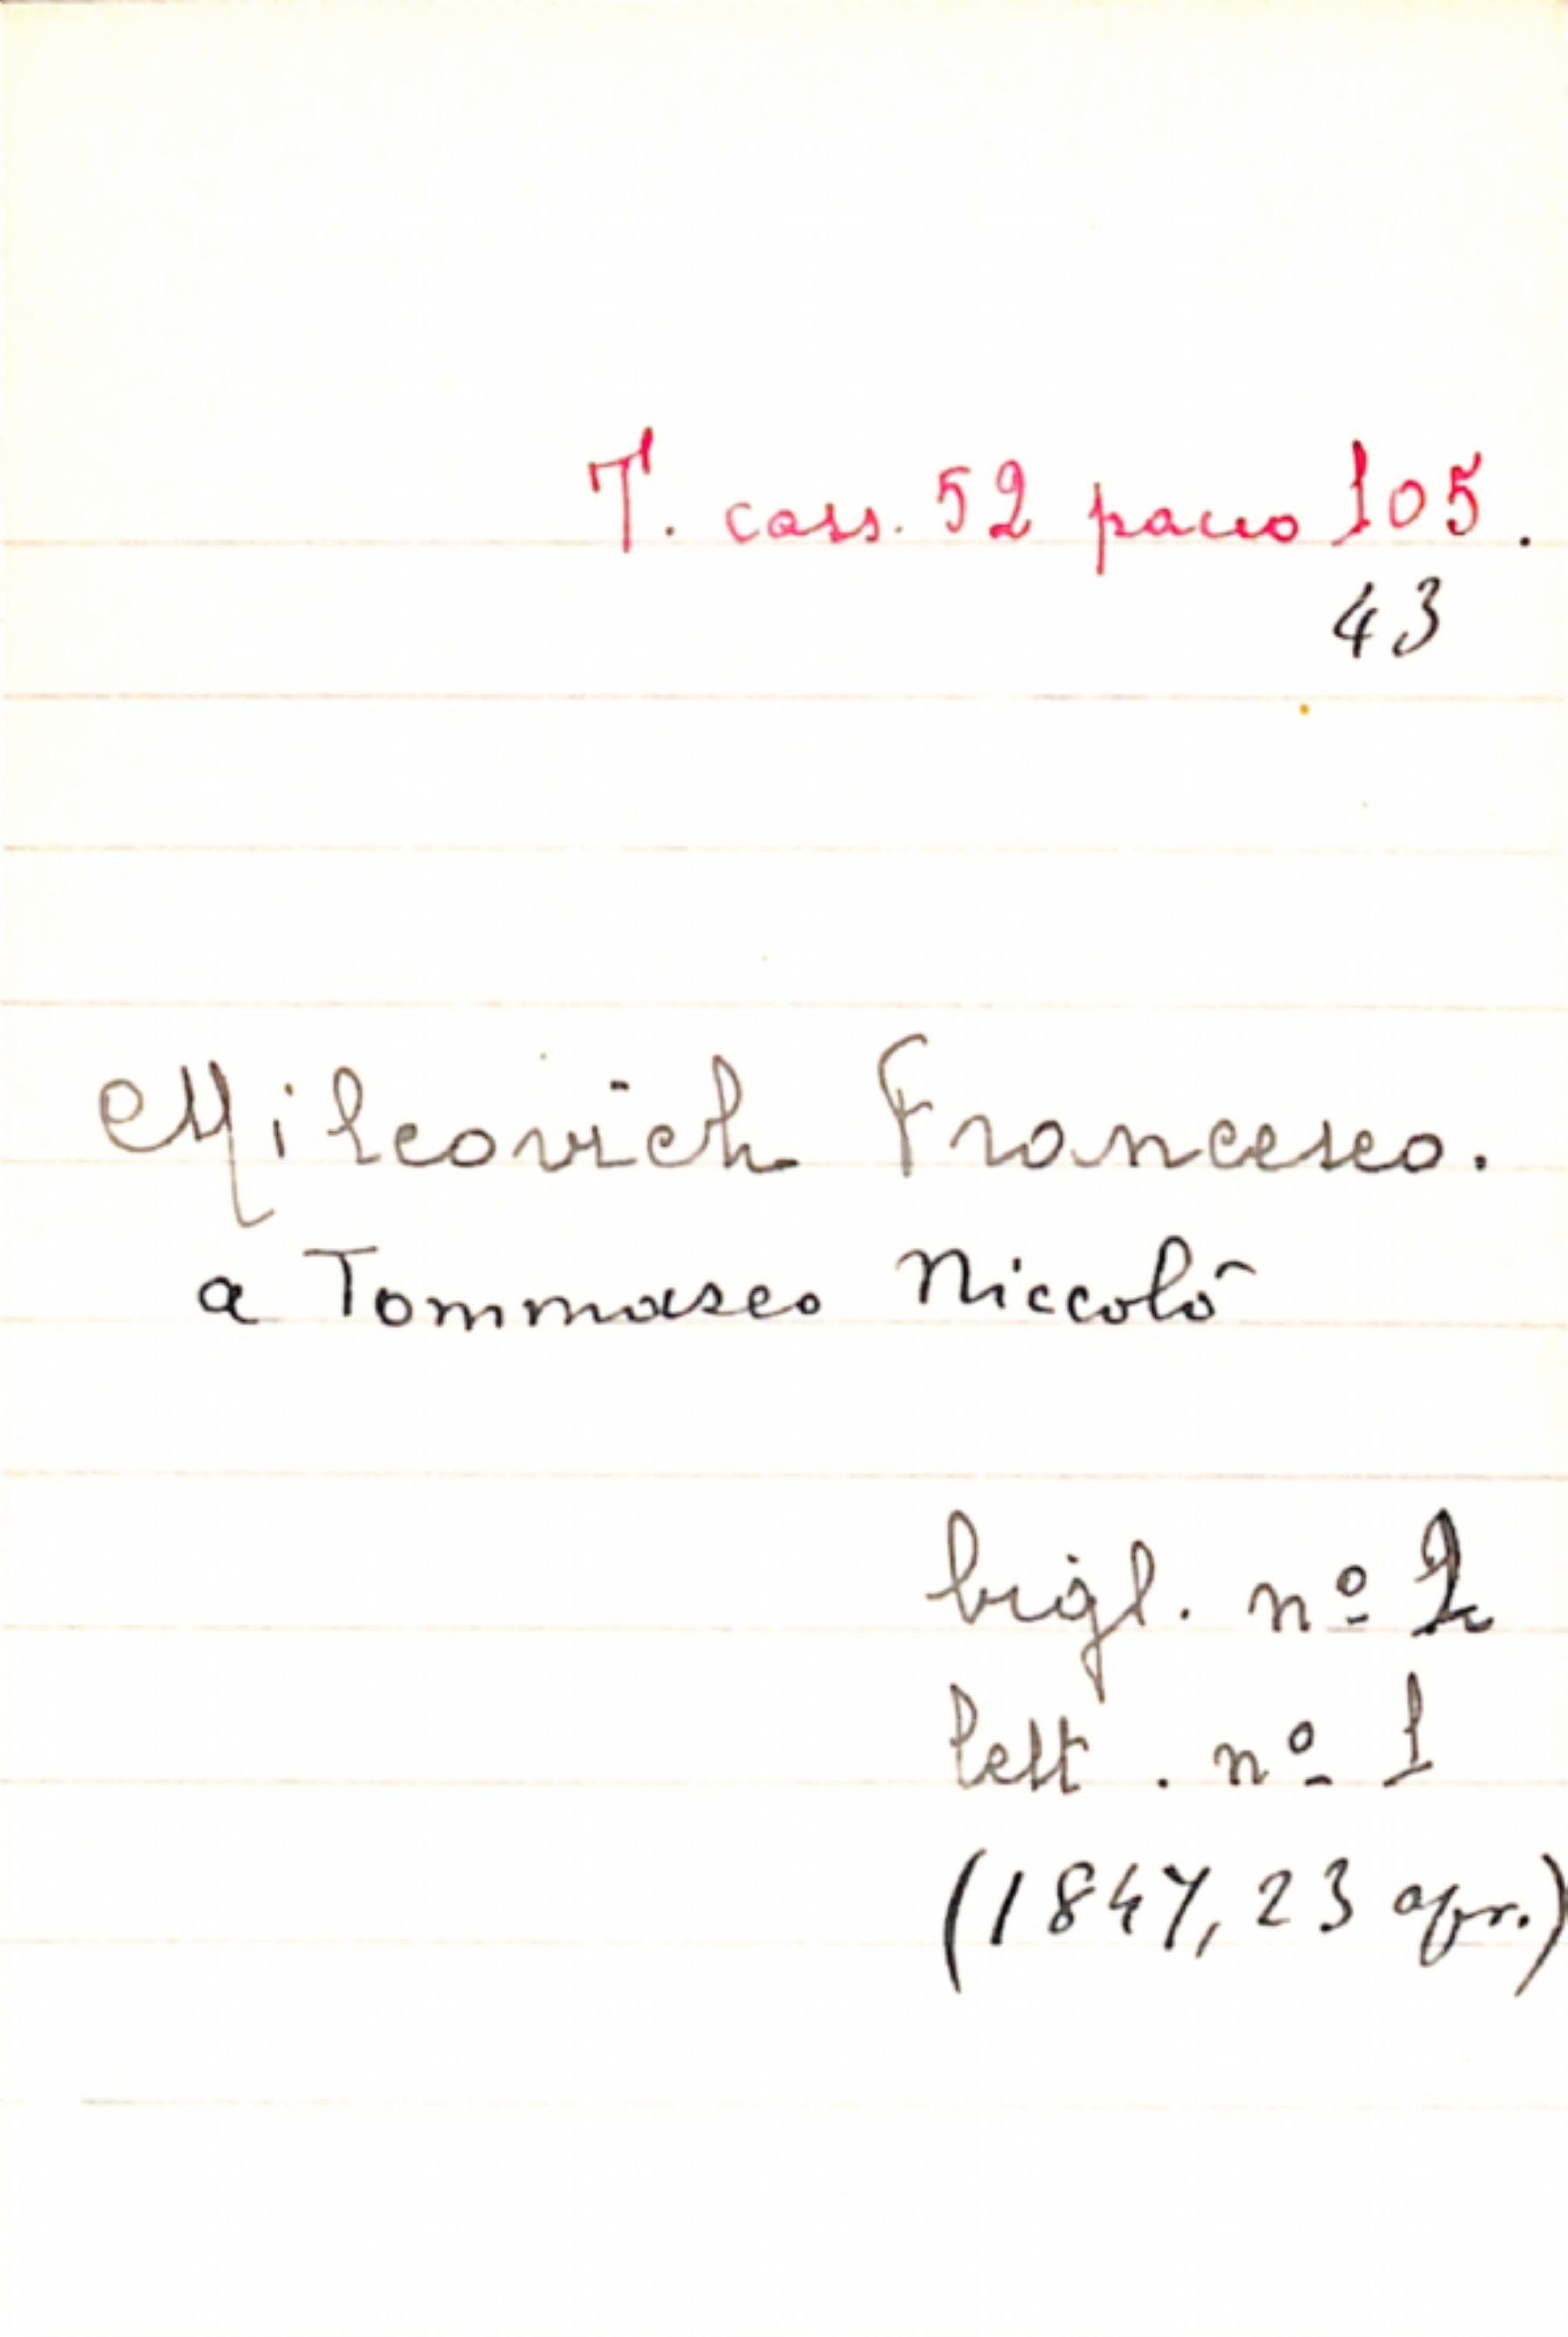 T. cass. 52 pacco 105.
43
Milcovich Francesco.
a Tommaseo Niccolò
bigl. nº 2
lett. nº 1
(1847, 23 apr.)